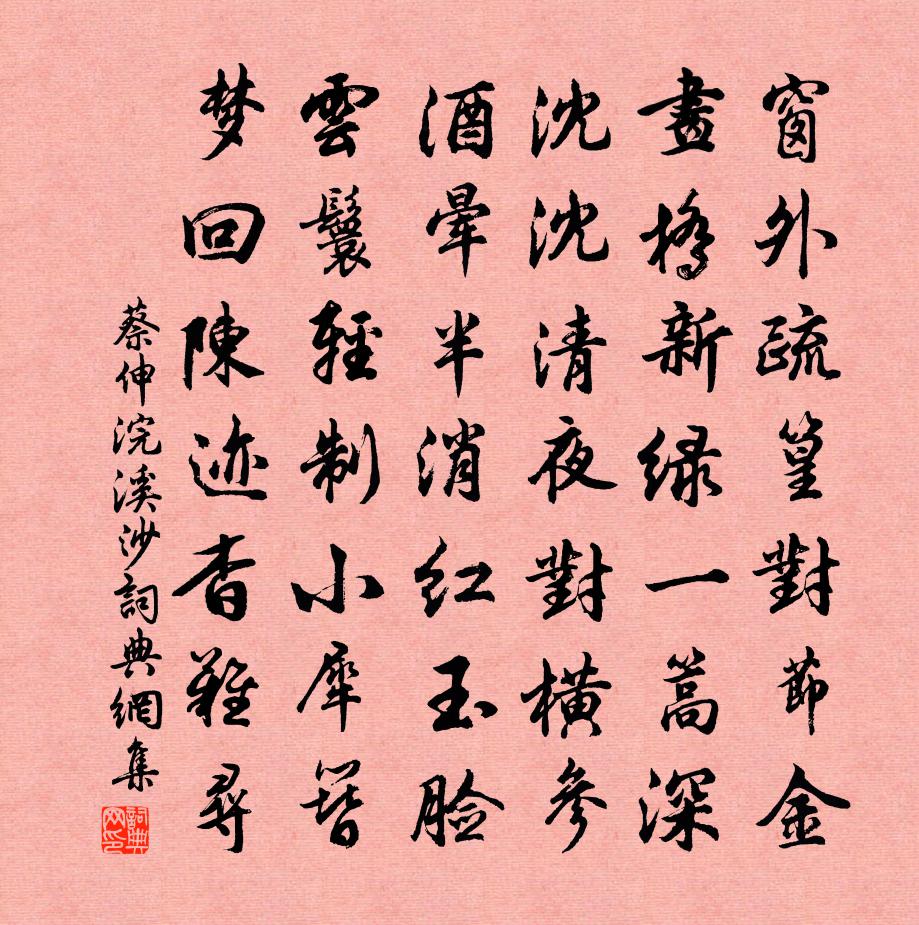 窗外疏篁對節金
畫橋新綠一篙深
沈沈清夜對橫參
酒暈半消紅玉臉
雲鬟輕制小犀簪
梦回陳迹杳難尋
蔡伸浣溪沙詞典網集
詞典网印